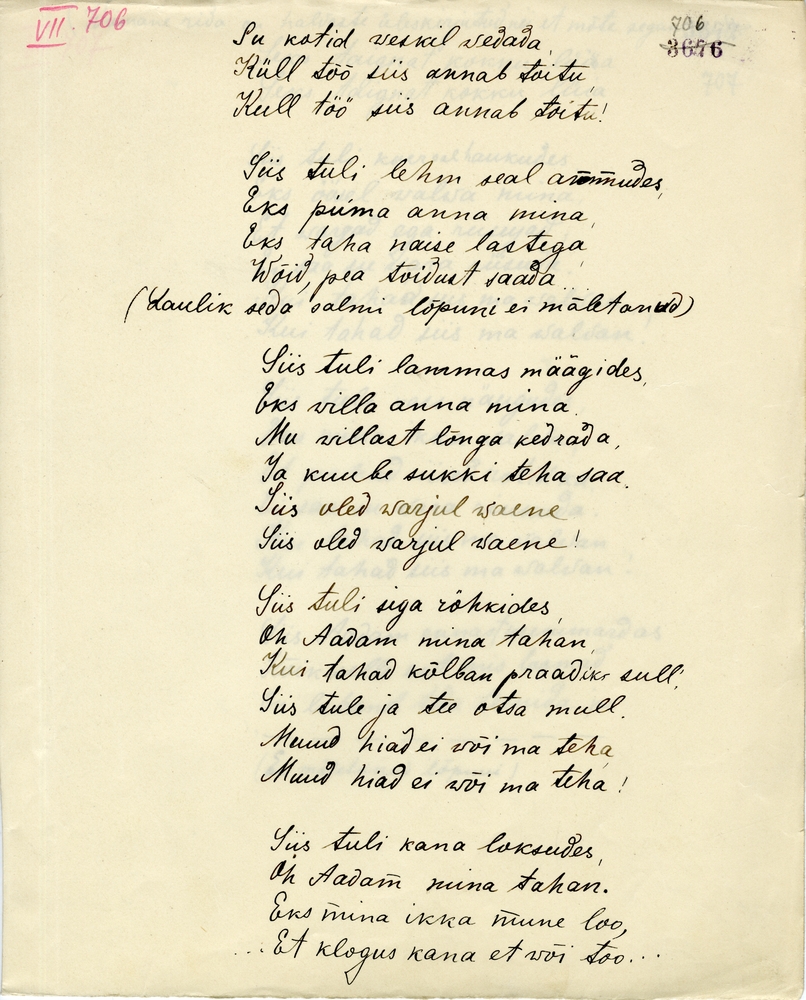 VII. 706
706
3676
Su kotid weskil wedada,
Küll töö siis annab toitu,
Küll töö siis annab toitu!
Siis tuli lehm seal ammudes,
Eks piima anna mina,
Eks taha naise lastega
Wõid, pea toidust saada...
(Laulik seda salmi lõpuni ei mäletanud)
Siis tuli lammas määgides,
Eks willa anna mina.
Mu willast lõnga kedrada,
Ja kuube sukki teha saa.
Siis oled warjul waene
Siis oled warjul waene!
Siis tuli siga röhkides,
Oh Aadam mina tahan,
Kui tahad kõlban praadiks sull',
Siis tule ja tee otsa mull.
Muud hiad ei wõi ma teha
Muud hiad ei wõi ma teha!
Siis tuli kana loksudes,
Oh Aadam mina tahan.
Eks mina ikka mune loo,
... Et klogus kana et wõi too...